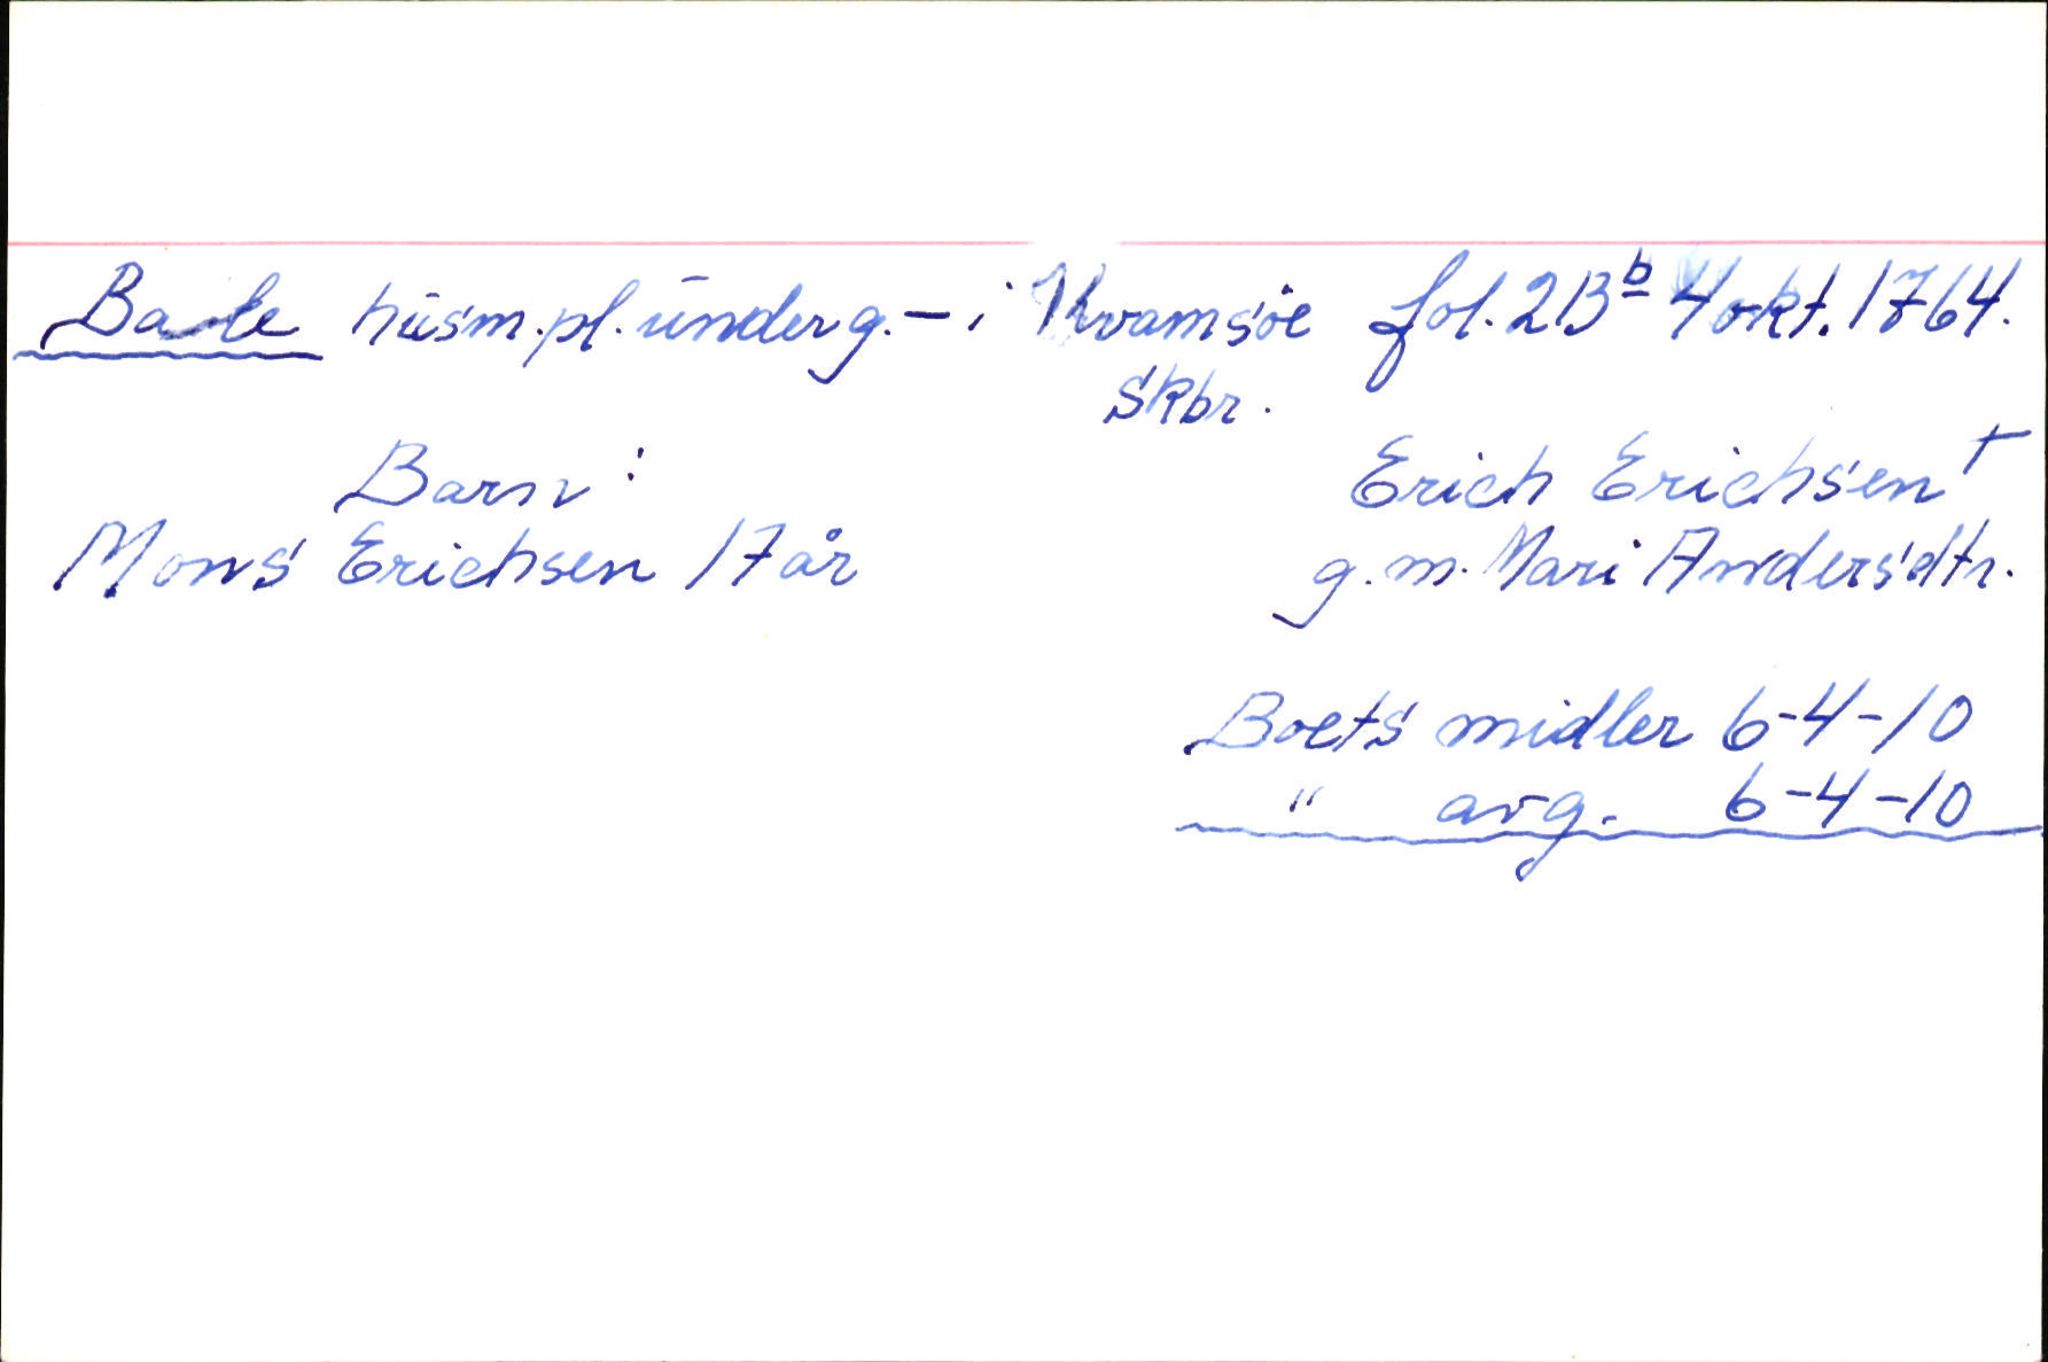 Barle husm.pl. under g. - i Kvamsøe fol. 213<sup>b</sup> 4 okt. 1764.
skbr.
Barn: Erich Erichsen †
Mons Erichsen 17 år g.m. Mari Andersdtr.
Boets midler 6-4-10
" avg. 6-4-10